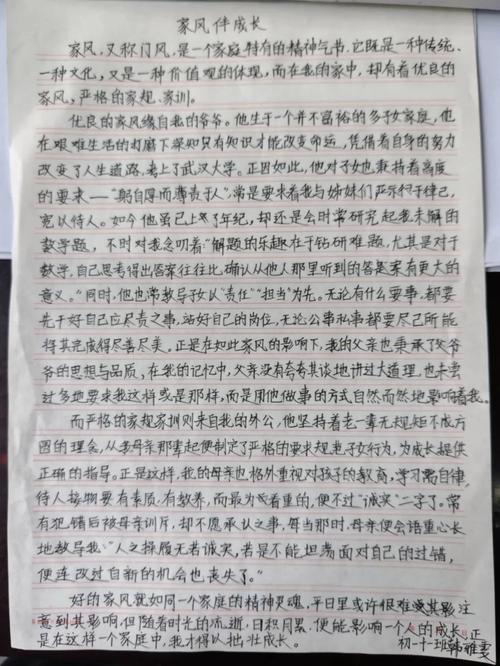 家风伴成长
家风，又称门风，是一个家庭特有的精神气节。它既是一种传统、
一种文化，又是一种价值观的体现，而在我的家中，却有着优良的
家风，严格的家规、家训。
优良的家风缘自我的爷爷。他生于一个并不富裕的多子女家庭，他
在艰难生活的打磨下深知只有知识才能改变命运，凭借着自身的努力
改变了人生道路，考上了武汉大学。正因如此，他对子女也秉持着高度
的要求——“躬自厚而薄责于人”，常是要求着我与姊妹们严于律己，
宽以待人。如今他虽已上了年纪，却还是会时常研究起我未解的
数学题，不时对我念叨着“解题的乐趣在于钻研难题，尤其是对于
数学，自己思考得出答案往往比确认从他人那里听到的答案有更大的
意义。”同时，他也常教导子女以“责任”“担当”为先。无论有什么要事，都要
先干好自己应尽责之事，站好自己的岗位，无论公事私事都要尽己所能
将其完成得尽善尽美。正是在如此家风的影响下，我的父亲也秉承了爷
爷的思想与品质，在我的记忆中，父亲没有夸夸其谈地讲过大道理，也未尝
过多地要求我这样或是那样，而是用他做事的方式自然而然地影响着我。
而严格的家规家训则来自我的外公，他坚持着老一辈无规矩不成方
圆的理念，从我母亲那辈起便制定了严格的要求规范子女行为，为成长提供
正确的指导。正是这样，我的母亲也格外重视对孩子的教育，学习需自律，
待人接物要有素质、有教养，而最为看重的，便不过“诚实”二字了。常
有犯错后被母亲训斥，却不愿承认之事，每当那时，母亲便会语重心长
地教导我：“人之操履无若诚实，若是不能坦荡面对自己的过错，
便连改过自新的机会也丧失了。”
好的家风就如同一个家庭的精神灵魂，平日里或许很难受其影注
意到其影响，但随着时光的流逝，日积月累，便能影响一个人的成长，正
是在这样一个家庭中，我才得以茁壮成长。
初一十一班 韩雅雯